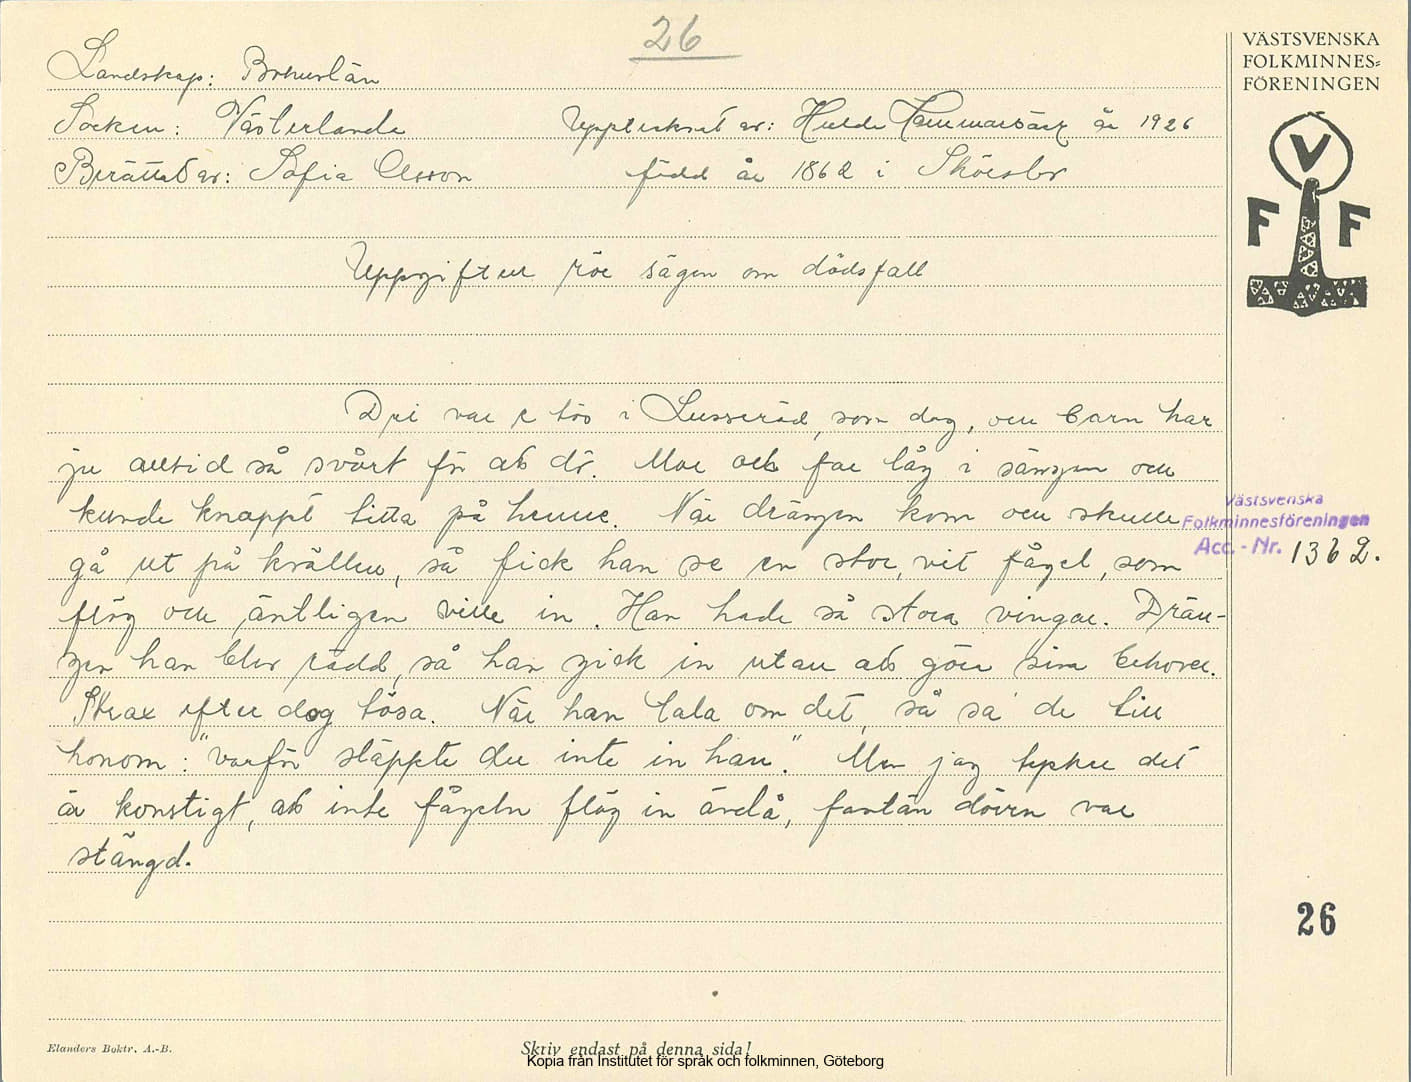 26
VÄSTSVENSKA
FOLKMINNES=
FÖRENINGEN
V
F F
Landskap: Bohuslän
Socken: Västerlanda Upptecknat av: Hulda Hammarbäck år 1926
Berättat av: Sofia Olsson född år 1862 i
Uppgiften rör sägen om dödsfall
Det var e tös i Lusseröd, som dog, och barn har
ju alltid så svårt för att dö. Mor och far låg i sängen och
kunde knappt titta på henne. När drängen kom och skulle
gå ut på kvällen, så fick han se en stor, vit fågel, som
flög och äntligen ville in. Han hade så stora vingar. Drän-
gen han blev rädd, så han gick in utan att göra sina behover.
Strax efter dog tösa. När han tala om det, så sa de till
honom: "varför släppte du inte in han". Men jag tycker det
är konstigt, att inte fågeln flög in ändå, fastän dörrn var
stängd.
Västsvenska
Folkminnesföreningen
Acc. - Nr. 1362.
26
Elanders Boktr. A.-B.
Skriv endast på denna sida!
Kopia från Institutet för språk och folkminnen, Göteborg